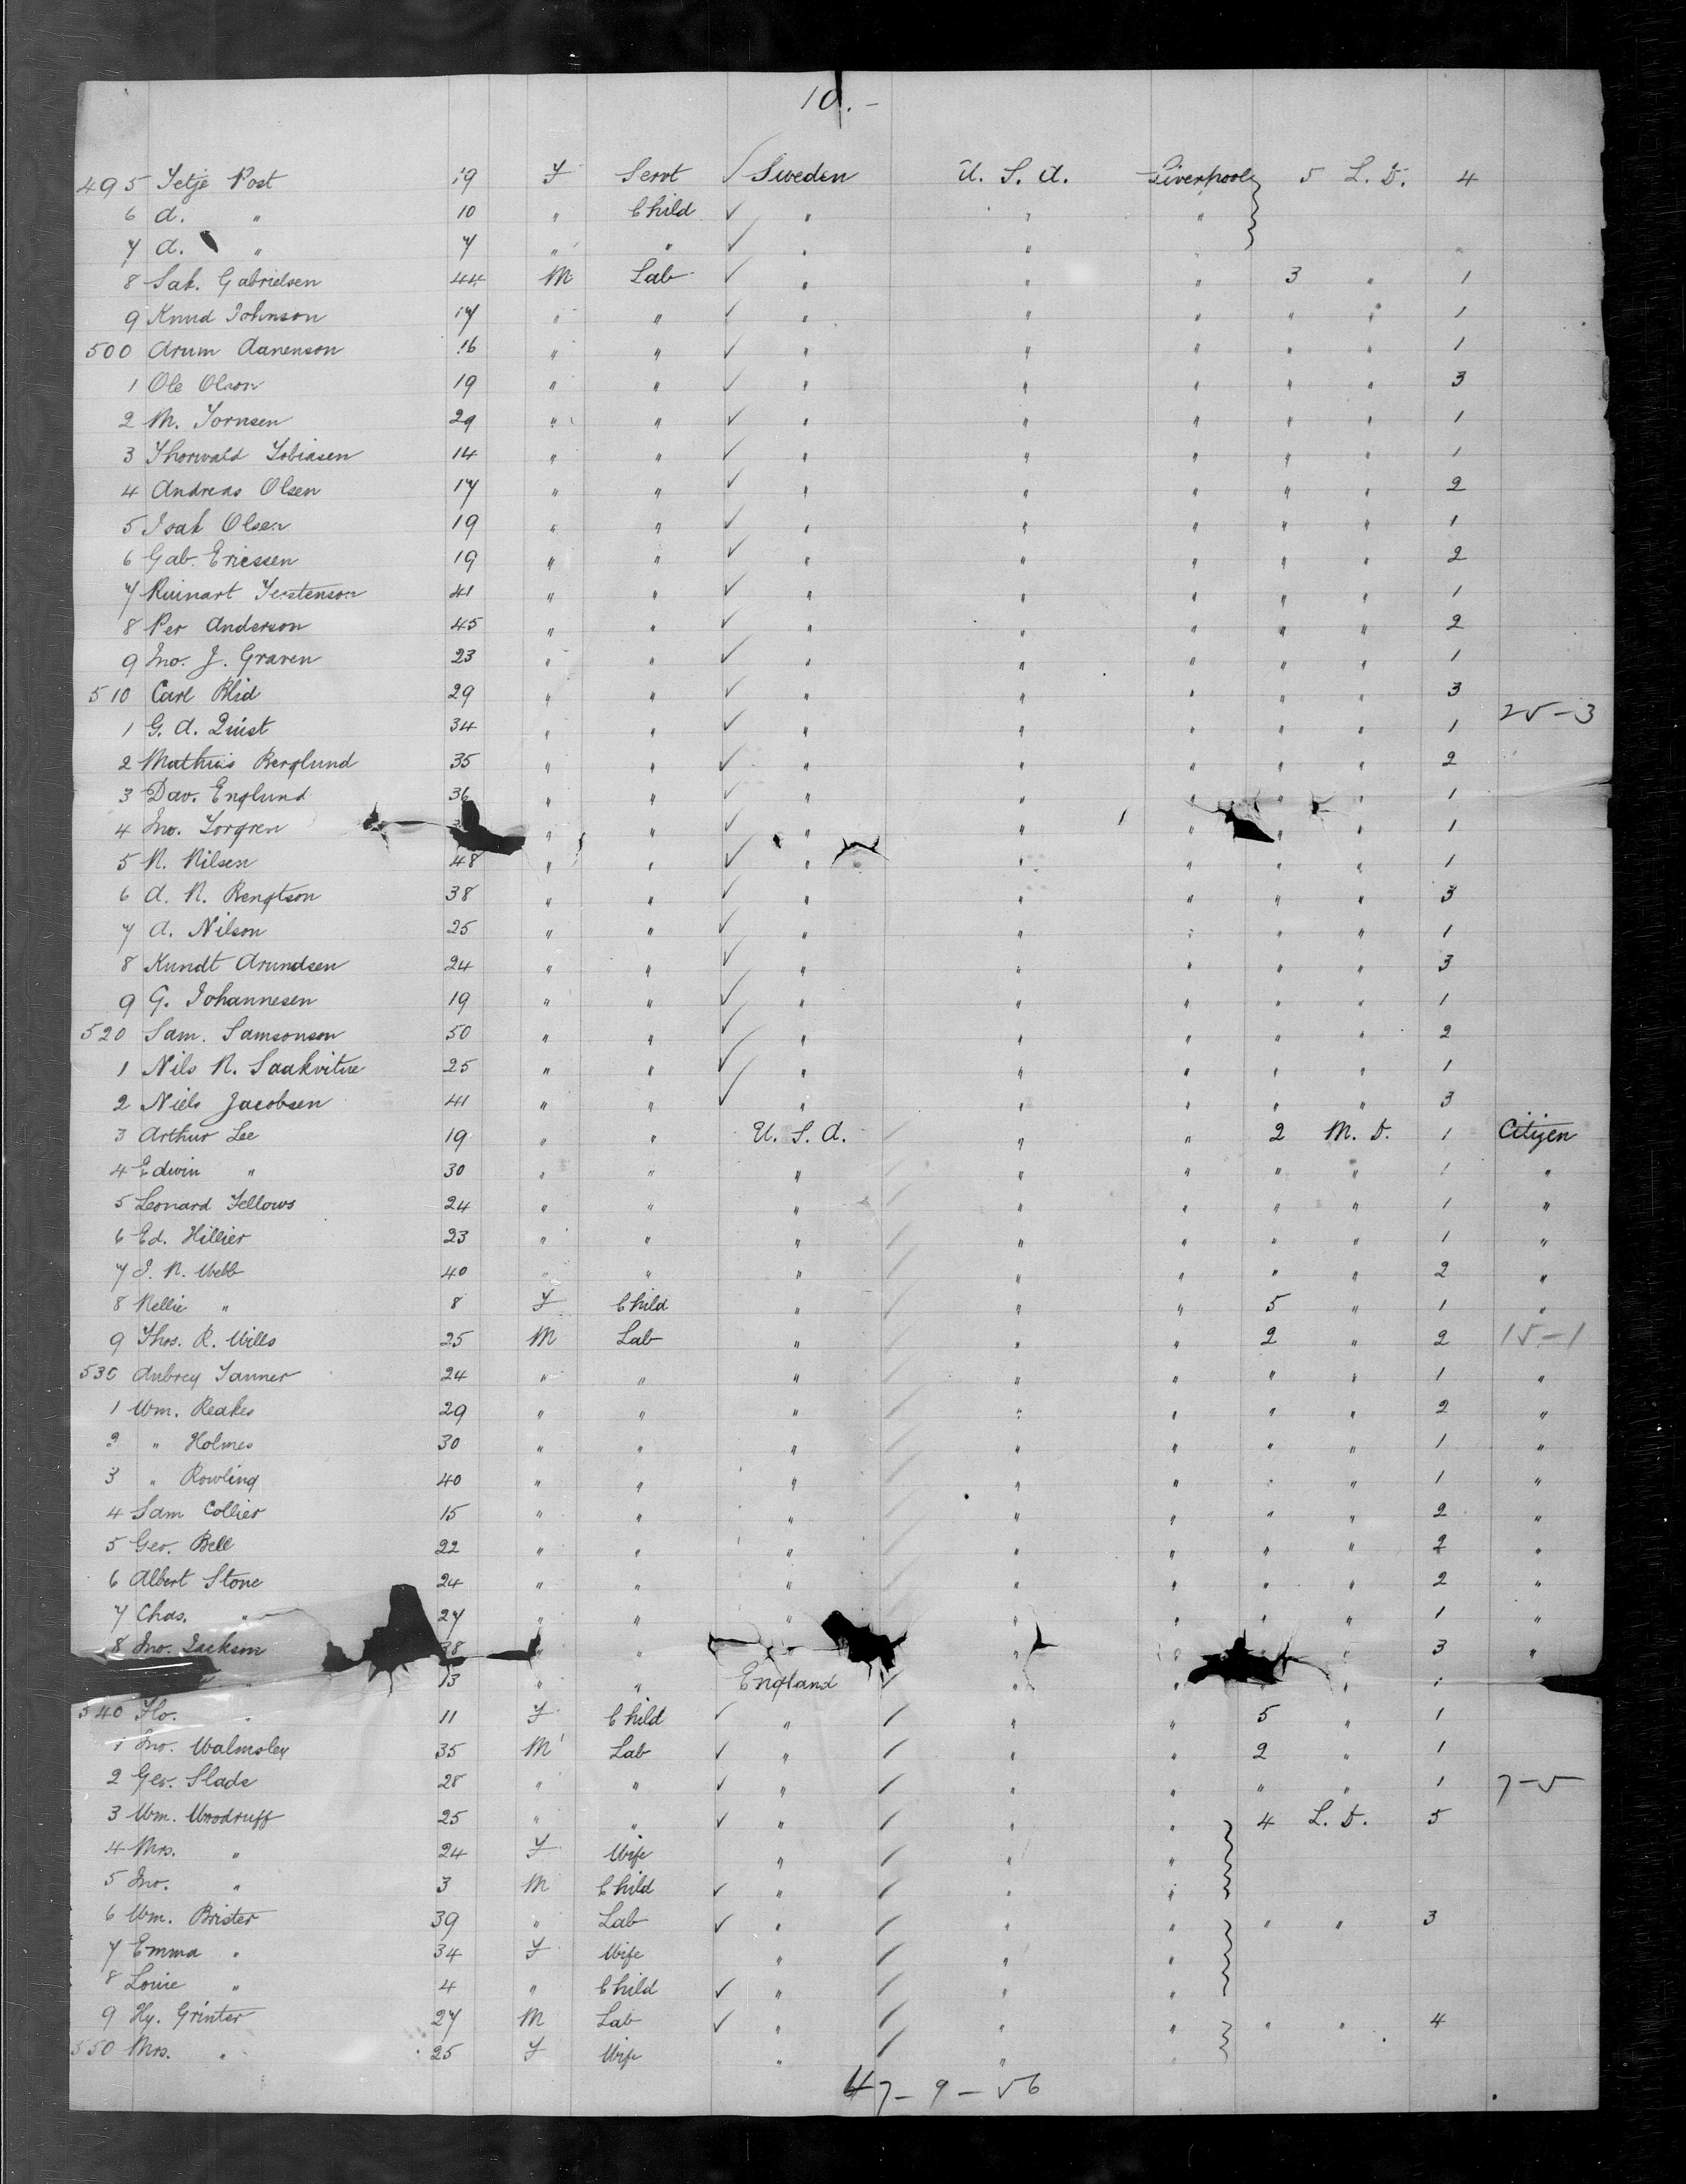 10. -
495 Tetje Post 19 F Servt ✓ Sweden U. S. A. Liverpool 5 L. D. 4
6 A. " 10 " Child ✓ " " "
7 A. " 7 " " ✓ " "
8 Sak. Gabrielsen 44 M Lab ✓ " " " 3 " 1
9 Knud Johnson 17 " " ✓ " " " " " 1
500 Arum Aanenson 16 " " ✓ " " " " " 1
1 Ole Olson 19 " " ✓ " " " " " 3
2 M. Tornsen 29 " " ✓ " " " " " 1
3 Thorwald Tobiasen 14 " " ✓ " " " " " 1
4 Andreas Olsen 17 " " ✓ " " " " " 2
5 Isak Olsen 19 " " ✓ " " " " " 1
6 Gab. Ericssen 19 " " ✓ " " " " " 2
7 Ruinart Terstenson 41 " " ✓ " " " " " 1
8 Per Anderson 45 " " ✓ " " " " " 2
9 Jno. J. Graven 23 " " ✓ " " " " " 1
510 Carl Blid 29 " " ✓ " " " " " 3
1 G. A. Quist 34 " " ✓ " " " " " 1 25-3
2 Mathias Berglund 35 " " ✓ " " " " " 2
3 Dav. Englund 36 " " ✓ " " " " " 1
4 Jno. Torgren " " ✓ " " " " " 1
5 N. Nilsen 48 " " ✓ " " " " " 1
6 A. N. Bengtson 38 " " ✓ " " " " " 3
7 A. Nilson 25 " " ✓ " " " " " 1
8 Kundt Arundsen 24 " " ✓ " " " " " 3
9 G. Johannesen 19 " " ✓ " " " " " 1
520 Sam. Samsonson 50 " " ✓ " " " " " 2
1 Nils N. Saakvitne 25 " " ✓ " " " " " 1
2 Niels Jacobsen 41 " " ✓ " " " " " 3
3 Arthur Lee 19 " " U. S. A. " " 2 M. D. 1 Citizen
4 Edwin " 30 " " " " " " " 1 "
5 Leonard Fellows 24 " " " " " " " 1 "
6 Ed. Hillier 23 " " " " " " " 1 "
7 J. N. Webb 40 " " " " " " " 2 "
8 Nellie " 8 F Child " " " 5 " 1 "
9 Thos. R. Wills 25 M Lab " " " 2 " 2 15-1
530 Aubrey Tanner 24 " " " " " " " 1 "
1 Wm. Reakes 29 " " " " " " " 2 "
2 " Holmes 30 " " " " " " " 1 "
3 " Rowling 40 " " " " " " " 1 "
4 Sam Collier 15 " " " " " " " 2 "
5 Geo. Bell 22 " " " " " " " 2 "
6 Albert Stone 24 " " " " " " " 2 "
7 Chas. " 27 " " " " " " " 1 "
8 Jno. Jackson 38 " " " " " 3 "
" 13 " " England ✓ " " " "
540 Flo. " 11 F Child ✓ " " " 5 " 1
1 Jno. Walmsley 35 M Lab ✓ " " " 2 " 1
2 Geo. Slade 28 " " ✓ " " " " " 1 7-5
3 Wm. Woodruff 25 " " ✓ " " " 4 L. D. 5
4 Mrs. " 24 F Wife " " "
5 Jno. " 3 M Child ✓ " " "
6 Wm. Brister 39 " Lab ✓ " " " " " 3
7 Emma " 34 F Wife " " "
8 Louie " 4 " Child ✓ " " "
9 Hy. Grinter 27 M Lab ✓ " " " " " 4
550 Mrs. " 25 F Wife " "
47-9-56